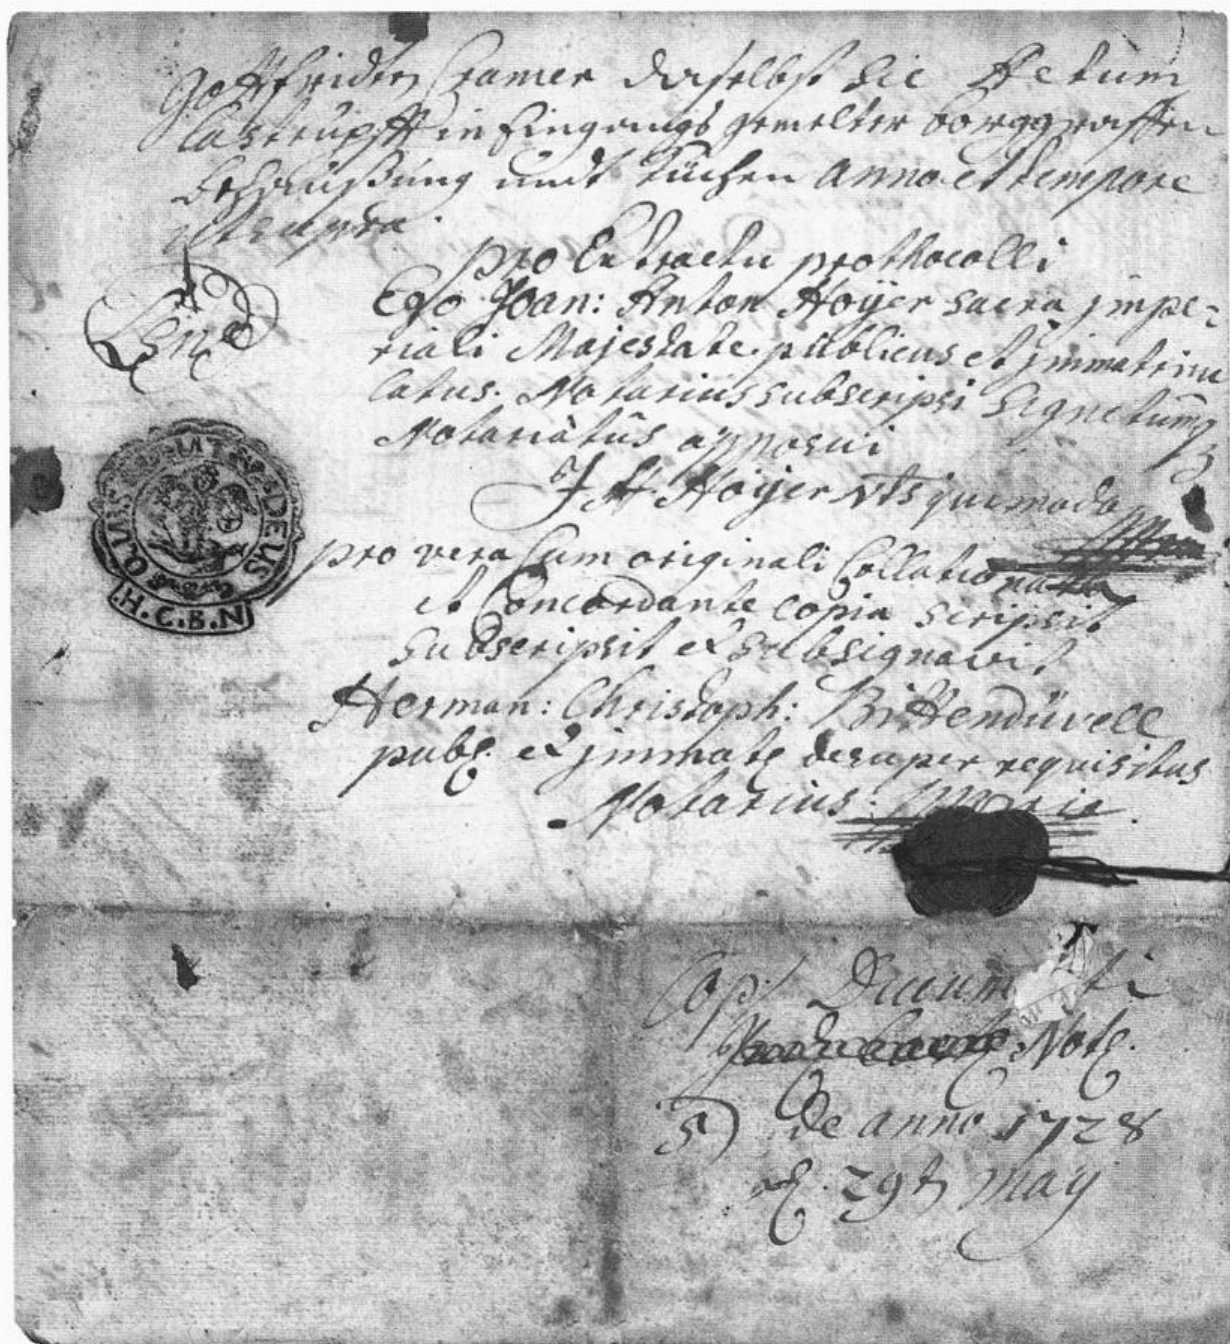 Gottfridten Cramer daselbst sic Actum
Lastrupff in Eingangs gemelter borggraffen
behaußung undt Küchen anno et tempore
ut supra.
pro Extractu prothocolli
Ego Joan: Anton Hoÿer sacra jmpe-
riali Majestate publicus et jmmatricu
latus Notarius subscripsi Signetumq
Notariatûs apposui
J A Hoÿer Nts
pro vera Cum originali Collationata
et Concordante copia scripsit
subscripsit et subsignavit
Herman: Christoph: Bittendüvell
publ. et jmmat desuper requisitus
Notarius:
H.C.B.N
DEUS
Cop:
Not.
5) de anno 1728
29t May